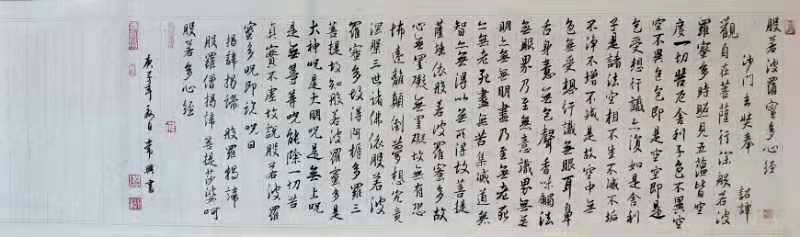 般若波羅蜜多心經
沙門玄奘奉 詔譯
觀自在菩薩行深般若波
羅蜜多時照見五蘊皆空
度一切苦厄舍利子色不異空
空不異色色即是空空即是
色受想行識亦復如是舍利
子是諸法空相不生不滅不垢
不淨不增不減是故空中無
色無受想行識無眼耳鼻
舌身意無色聲香味觸法
無眼界乃至無意識界無無
明亦無無明盡乃至無老死
亦無老死盡無苦集滅道無
智亦無得以無所得故菩提
薩埵依般若波羅蜜多故
心無罣礙無罣礙故無有恐
怖遠離顛倒夢想究竟
涅槃三世諸佛依般若波
羅蜜多故得阿耨多羅三
菩提故知般若波羅蜜多是
大神咒是大明咒是無上咒
是無等等咒能除一切苦
真實不虛故說般若波羅
蜜多咒即說咒曰
揭諦揭諦 般羅揭諦
般羅僧揭諦菩提莎婆呵
般若多心經
庚子年夏日 常興書